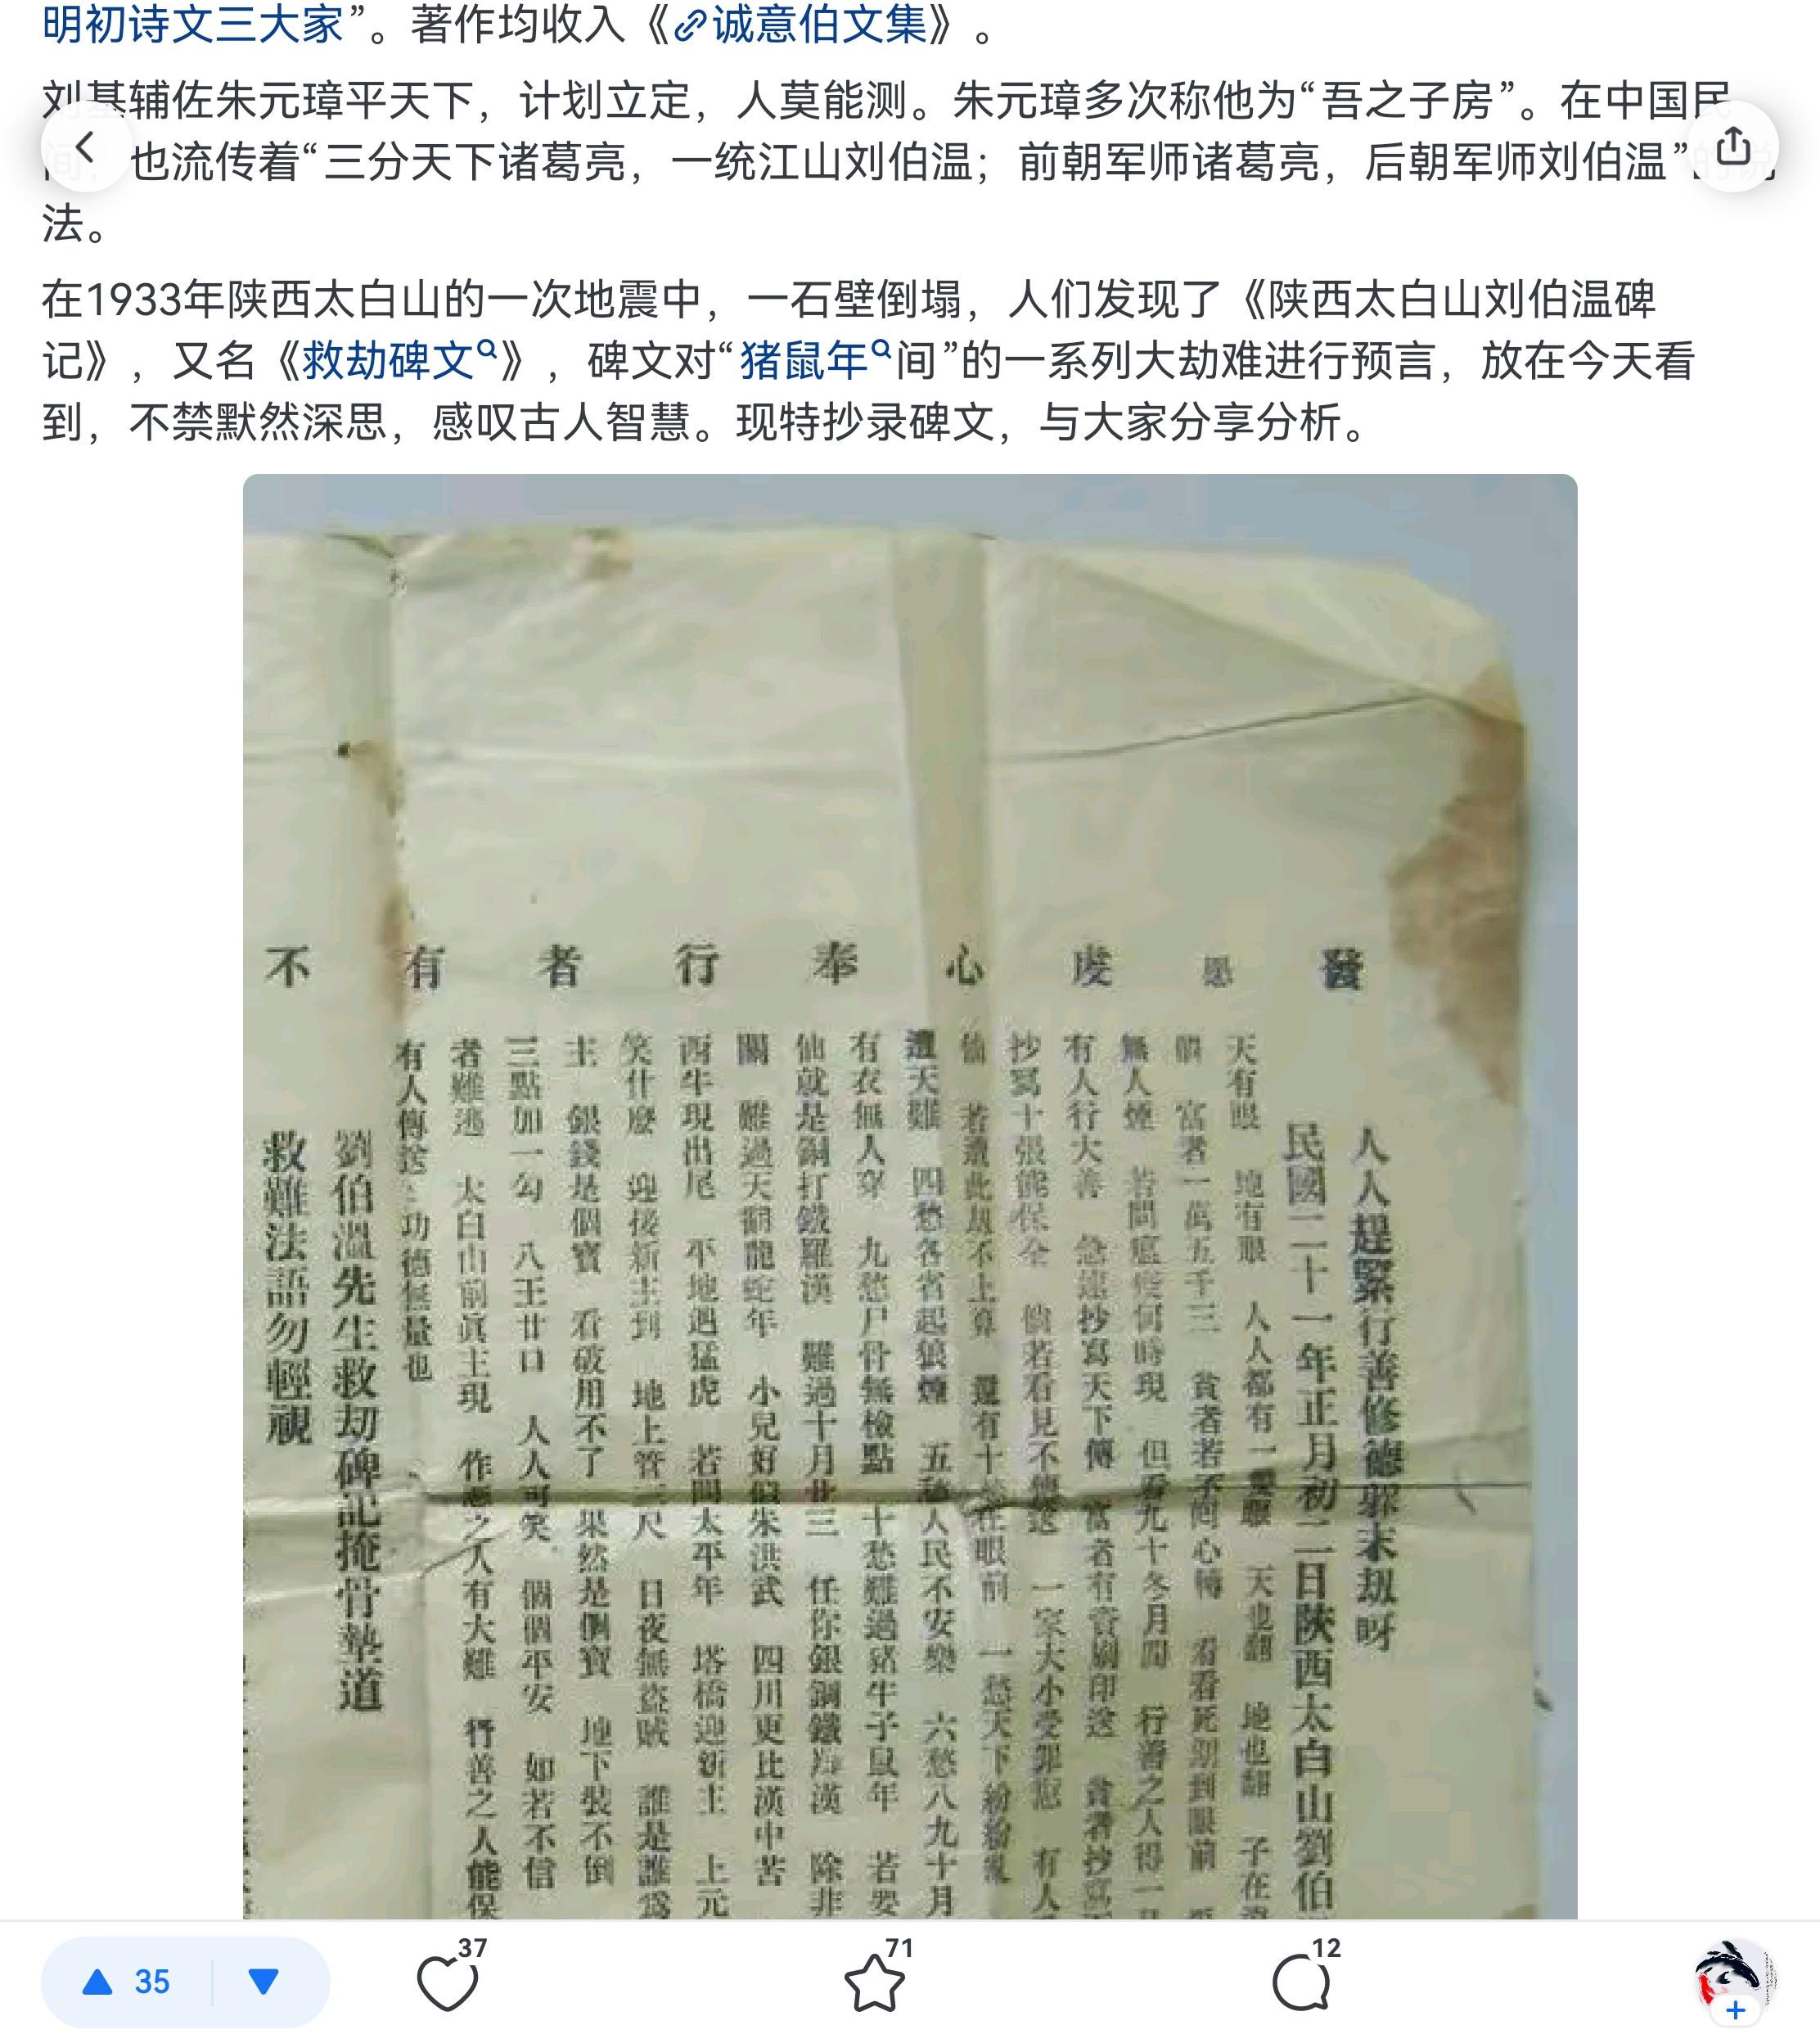 明初诗文三大家”。著作均收入《诚意伯文集》。
刘基辅佐朱元璋平天下，计划立定，人莫能测。朱元璋多次称他为“吾之子房”。在中国民
间，也流传着“三分天下诸葛亮，一统江山刘伯温；前朝军师诸葛亮，后朝军师刘伯温”的说
法。
在1933年陕西太白山的一次地震中，一石壁倒塌，人们发现了《陕西太白山刘伯温碑
记》，又名《救劫碑文》，碑文对“猪鼠年间”的一系列大劫难进行预言，放在今天看
到，不禁默然深思，感叹古人智慧。现特抄录碑文，与大家分享分析。
虔心奉行者有不
人人趕緊行善修德躱末刼呀
民國二十一年正月初二日陝西太白山劉伯
天有眼 地有眼 人人都有一雙眼 天也翻 地也翻 子在
富者一萬五千三 貧者若不回心轉 看看死期到眼前
無人煙 若問瘟疫何時現 但看九十冬月間 行善之人得一
有人行大善 急速抄寫天下傳 富者有資刷印送 貧者抄寫
抄寫十張能保全 倘若看見不傳送 一家大小受罪愆 有人
仙 若遭此刼不上算 還有十愁在眼前 一愁天下紛紛亂
遭天難 四愁各省起狼煙 五愁人民不安樂 六愁八九十月
有衣無人穿 九愁尸骨無檢點 十愁難過豬牛子鼠年 若要
仙就是銅打鐵羅漢 難過十月廿三 任你銀銅鐵羅漢 除非
關 難過天翻龍蛇年 小兒好個朱洪武 四川更比漢中苦
西牛現出尾 平地遇猛虎 若問太平年 塔橋迎新主 上元
笑什麼 迎接新主到 地上管三尺 日夜無盜賊 誰是誰爲
主 銀錢是個寶 看破用不了 果然是個寶 地下裝不倒
三點加一勾 八王廿口 人人可笑 個個平安 如若不信
者難逃 太白山前眞主現 作惡之人有大難 行善之人能保
有人傳送 功德無量也
劉伯溫先生救刼碑記掩骨墊道
救難法語勿輕視
35
37
71
12